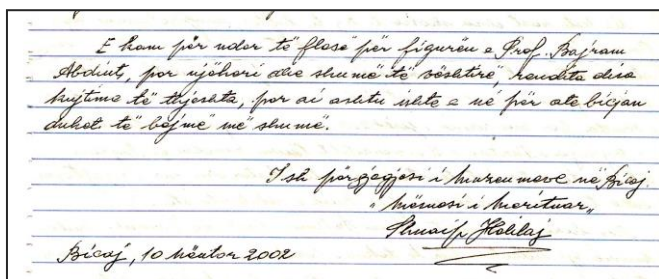 E kam për nder të flasë për figurën e Prof. Bajram
Abdiut, por njohëri dhe shumë të vështirë, rendita disa
kujtime të thjeshta, por ai ashtu ishte e në për ate bicjan
duhet të bëjmë më shumë.
Ish përgjegjësi i muzeumeve në Bicaj.
"Mësuesi i merituar"
Shuaip Halilaj
Bicaj, 10 nëntor 2002